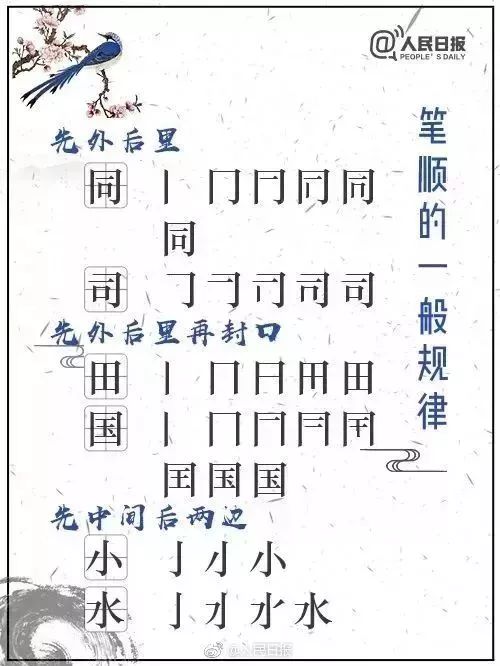 @人民日报
PEOPLE'S DAILY
笔顺的一般规律
先外后里
同 丨 冂 同
同
司 𠃌 司 司
先外后里再封口
田 丨 冂 日 田
国 丨 冂
国 国
先中间后两边
小 亅 小
水 亅 水
@人民日报